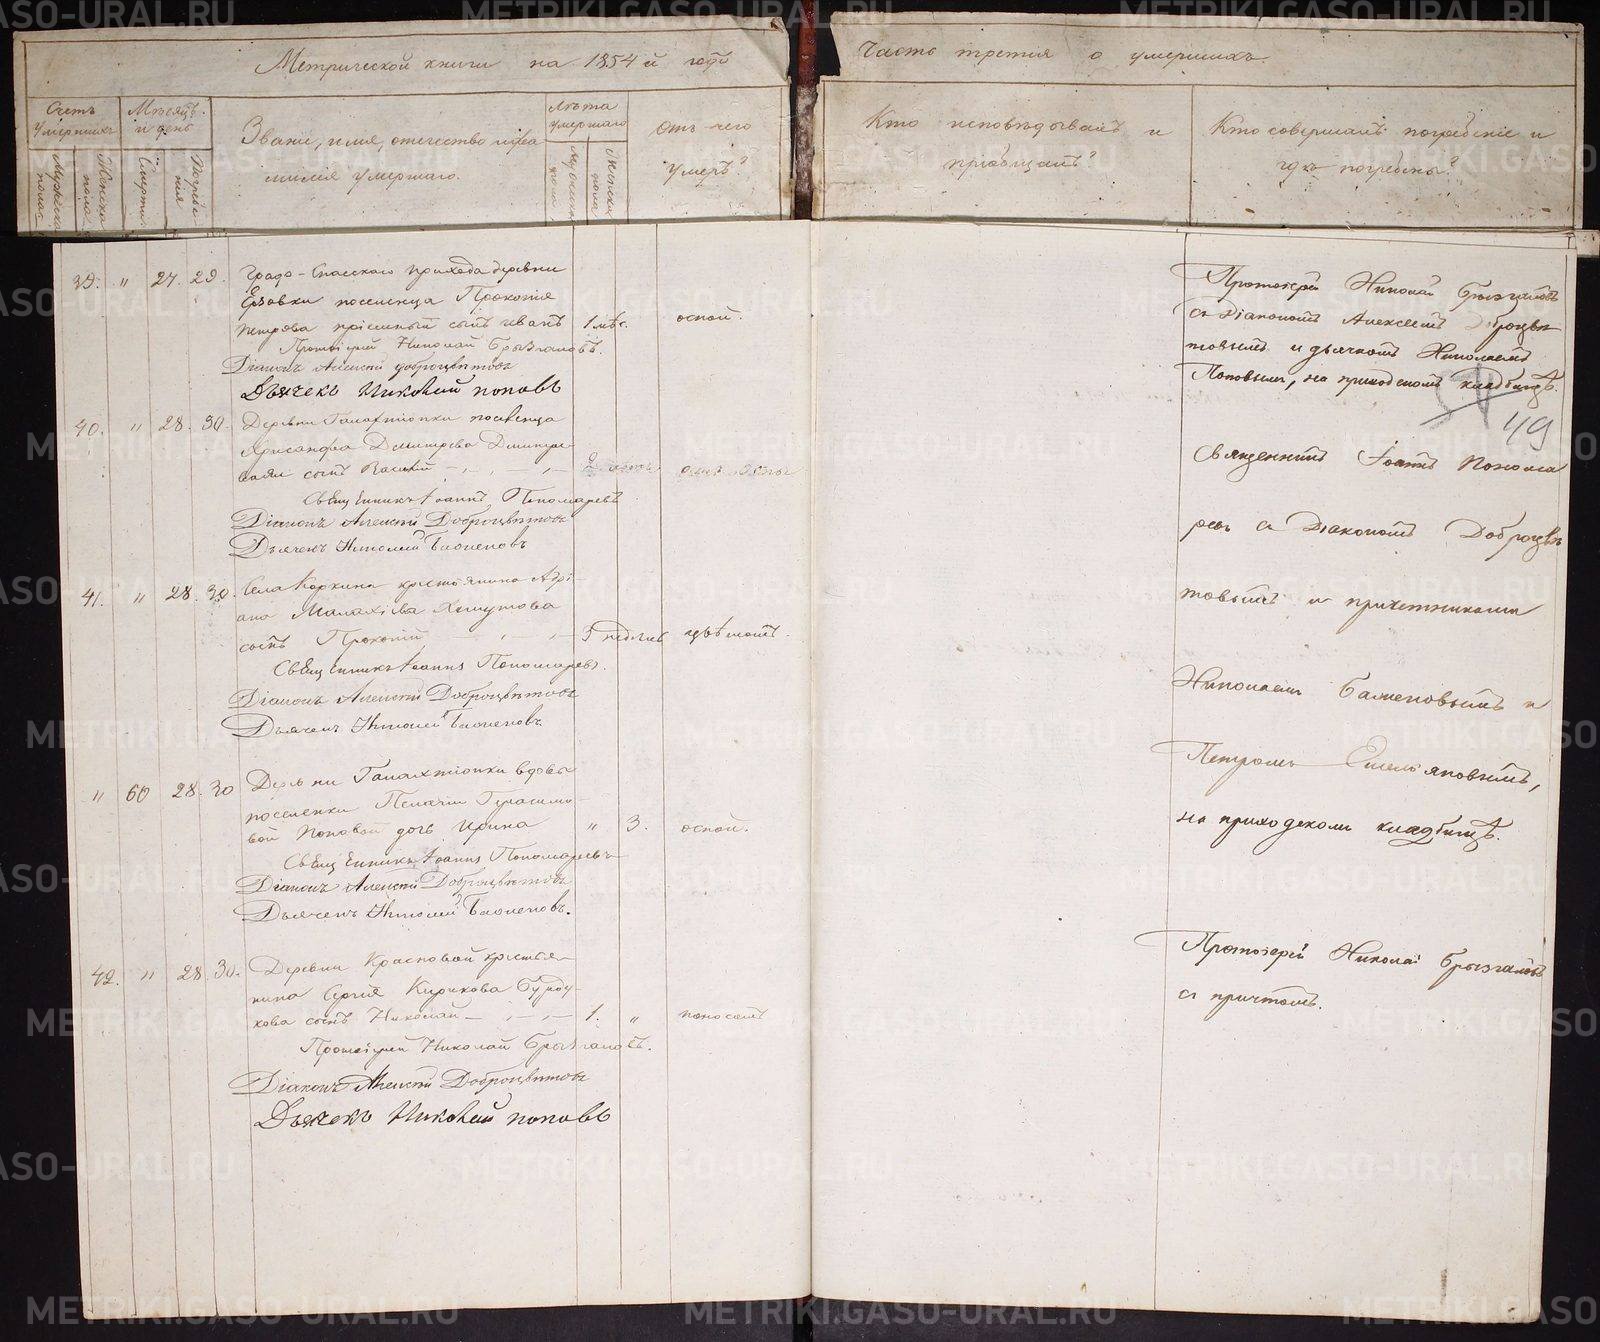 Метрической книги на 1854й годъ
Часть третія о умершихъ
Счетъ умершихъ
Мѣсяцъ и день
Званіе, имя, отчество и фа-
милія умершаго.
Лѣта умершаго
Отъ чего
умеръ?
Кто исповѣдывалъ и
пріобщалъ?
Кто совершалъ погребеніе и
гдѣ погребены?
Мужеска пола
Женска пола
Смерти
Погребе
нія
Мужеска
пола
Женска
пола
39. " 27. 29. Градо-Спасскаго прихода деревни
поселенца Прокопія
Петрова пріемный сынъ Иванъ 1 мѣс. оспой.
Протоіерей Николай Брызгаловъ.
Діаконъ Алексѣй Доброцвѣтовъ
Дьячекъ Николай Поповъ
Протоіерей Николай Брызгаловъ
съ Діакономъ Алексѣемъ Доброцвѣ
товымъ и дьячкомъ Николаемъ
Поповымъ, на приходскомъ кладбищѣ.
49
40. " 28. 30. Деревни поселенца
Димитрі-
сынъ Василій
Священникъ Іоаннъ Пономаревъ
Діаконъ Алексѣй Доброцвѣтовъ
Дьячекъ Николай Баженовъ
Священникъ Іоаннъ Понома
ревъ съ Діакономъ Доброцвѣ
товымъ и причетниками
Николаемъ Баженовымъ и
Петромъ Емельяновымъ,
на приходскомъ кладбищѣ.
41. " 28. 30. Села Коркина крестьянина Адрі-
ана Малахіева Хомутова
сынъ Прокопій недѣль
Священникъ Іоаннъ Пономаревъ.
Діаконъ Алексѣй Доброцвѣтовъ
Дьячекъ Николай Баженовъ
" 60 28. 30 Деревни вдовы
поселенки Герасимо-
вой Поповой дочь Ирина " 3. оспой.
Священникъ Іоаннъ Пономаревъ
Діаконъ Алексѣй Доброцвѣтовъ
Дьячекъ Николай Баженовъ.
42. " 28. 30. Деревни Красновой крестья-
нина Сергія Кирикова
сынъ Николай 1. " поносомъ
Протоіерей Николай Брызгаловъ.
Діаконъ Алексѣй Доброцвѣтовъ
Дьячекъ Николай Поповъ
Протоіерей Николай Брызгаловъ
съ причтомъ.
METRIKI.GASO-URAL.RU